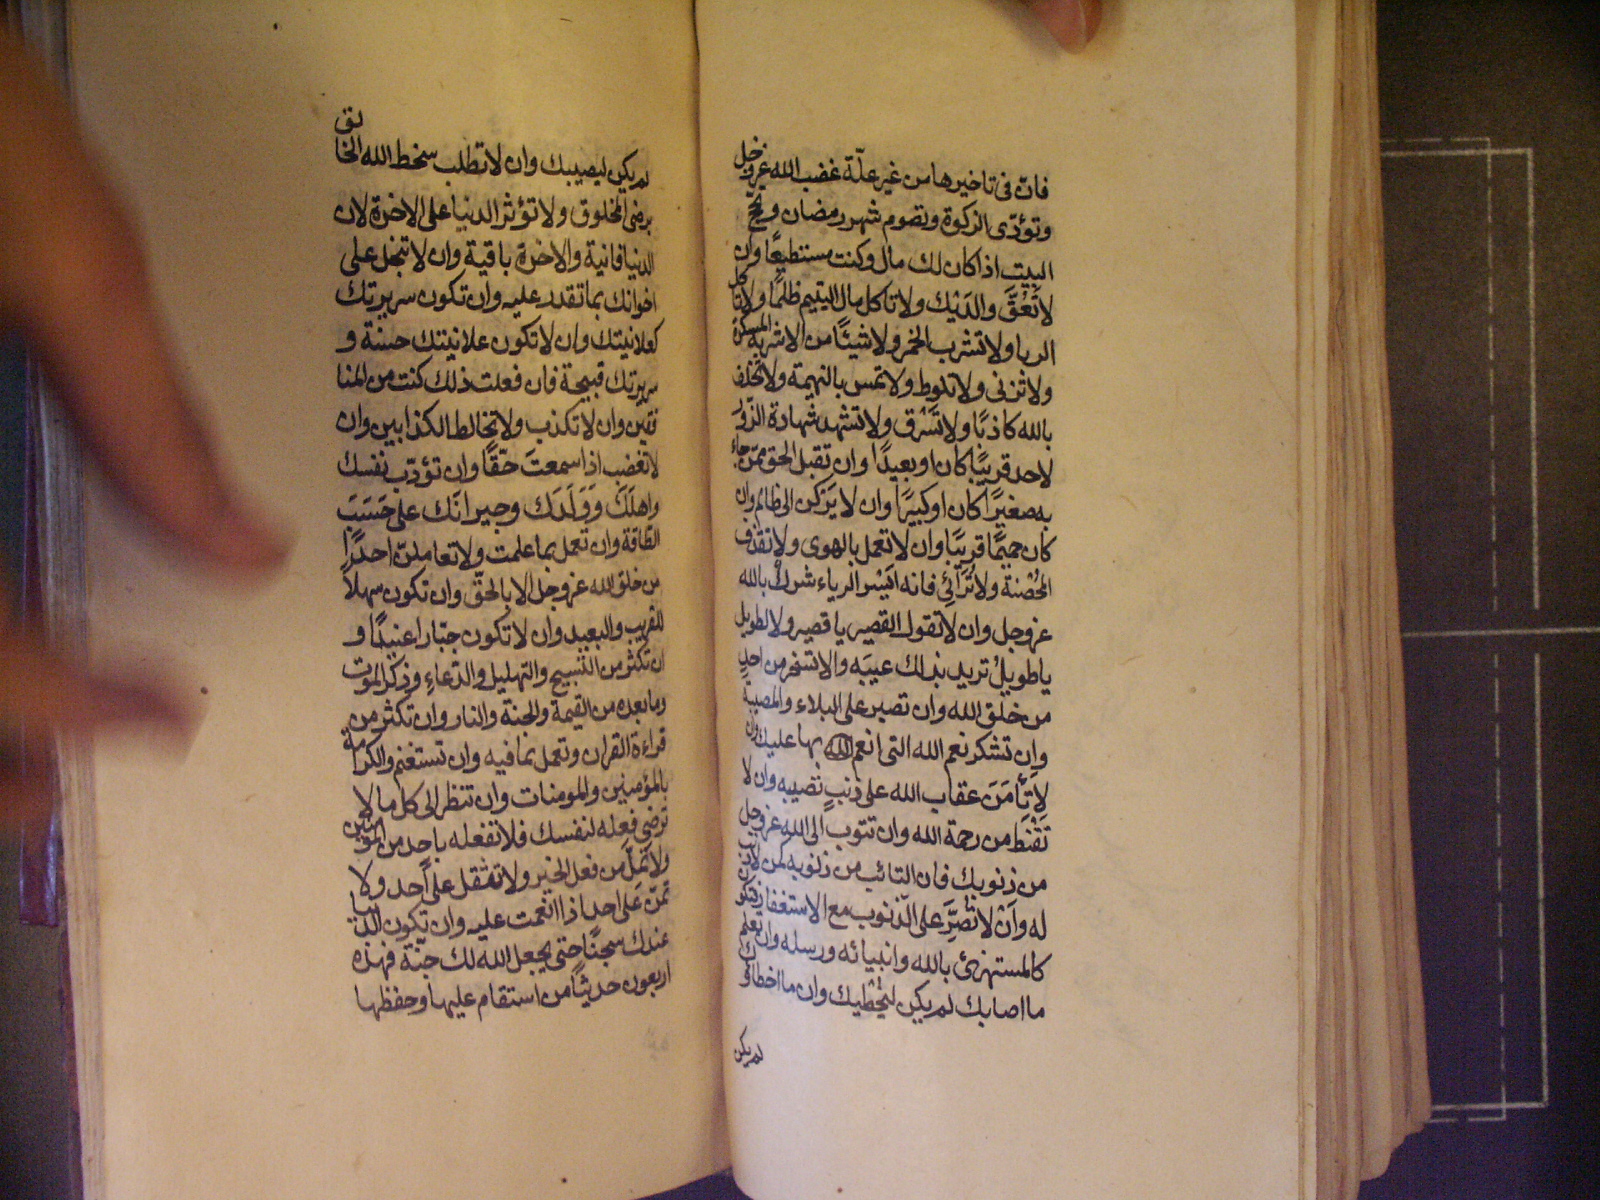 فان فى تاخيرها من غير علّة غضب الله عزوجل
وتؤدّى الزكوة وتصوم شهر رمضان وتحجّ
البيت اذا كان لك مال وكنت مستطيعًا وان
لا تَعُقَّ والدَيْك ولا تاكل مال اليتيم ظلمًا ولا تاكل
الربا ولا تشرب الخمر ولا شيئًا من الاشربة المسكرة
ولا تزنى ولا تلوط ولا تمس بالنميمة ولا تحلف
بالله كاذبًا ولا تَسْرق ولا تشهد شهادة الزّور
لاحد قريبًا كان او بعيدًا وان تقبل الحق ممّن جاء
به صغيرًا كان او كبيرًا وان لا يَرْكن الى ظالم وان
كان حميمًا قريبًا وان لا تعمل بالهوى ولا تقذف
المُحْصَنة ولا تُرَائِي فانه ايسر الرياء شرك بالله
عزوجل وان لا تقول القصير يا قصير ولا لطويل
يا طويلُ تريد بذلك عيبَه والا تسخر من احدٍ
من خلق الله وان تصبر على البلاء والمصيبة
وان تشكر نعم الله التى انعم الله بها عليك وان
لا تَأمَنَ عقاب الله على ذنبٍ تصيبه وان لا
تَقْنَط من رحمة الله وان تتوب الى الله عزوجل
من ذنوبك فان التائب من ذنوبه كمن لا ذنب
له وَاَنْ لا تُصِرَّ على الذّنوب مع الاستغفار فتكون
كالمستهزئ بالله وانبيائه ورسله وان تعلم
ما اصابك لم يكن ليخطيك وان ما اخطاك
لم يكن
لم يكن ليصيبك وان لا تطلب سخط الله الخالق
برضى المخلوق ولا تؤثر الدنيا على الاخرة لان
الدنيا فانية والاخرة باقية وان لا تبخل على
اخوانك بما تقدر عليه وان تكون سريرتك
كعلانيتك وان لا تكون علانيتك حسنة و
سريرتك قبيحة فان فعلت ذلك كنت من المنا
فقين وان لا تكذب ولا تخالط الكذابين وان
لا تغضب اذا سمعتَ حَقًّا وان تؤدّب نفسك
واهلَكَ وَوَلَدَك وجيرانَك على حَسَبَ
الطّاقة وان تعمل بما علمت ولا تعاملنّ احدًا
من خلق الله عزوجل الا بالحقّ وان تكون سهلًا
للقريب والبعيد وان لا تكون جبّارا عنيدًا و
ان تكثر من التّسبيح والتهليل والدّعاءِ وذكر الموت
وما بعده من القيمة والجنة والنار وان تكثر من
قراءة القران وتعمل بما فيه وان تستغنم والكرامة
بالمؤمنين والمومنات وان تنظر الى كل ما لا
ترضى فعله لنفسك فلا تفعله باحد من المؤمنين
ولا تَملّ من فعل الخير ولا تثقل على أحد ولا
تمنّ على احد اذا انعمت عليه وان تكون الدّنيا
عندك سجنًا حتى يجعل الله لك جنّة فهذه
اربعون حديثًا من استقام عليها وحفظها